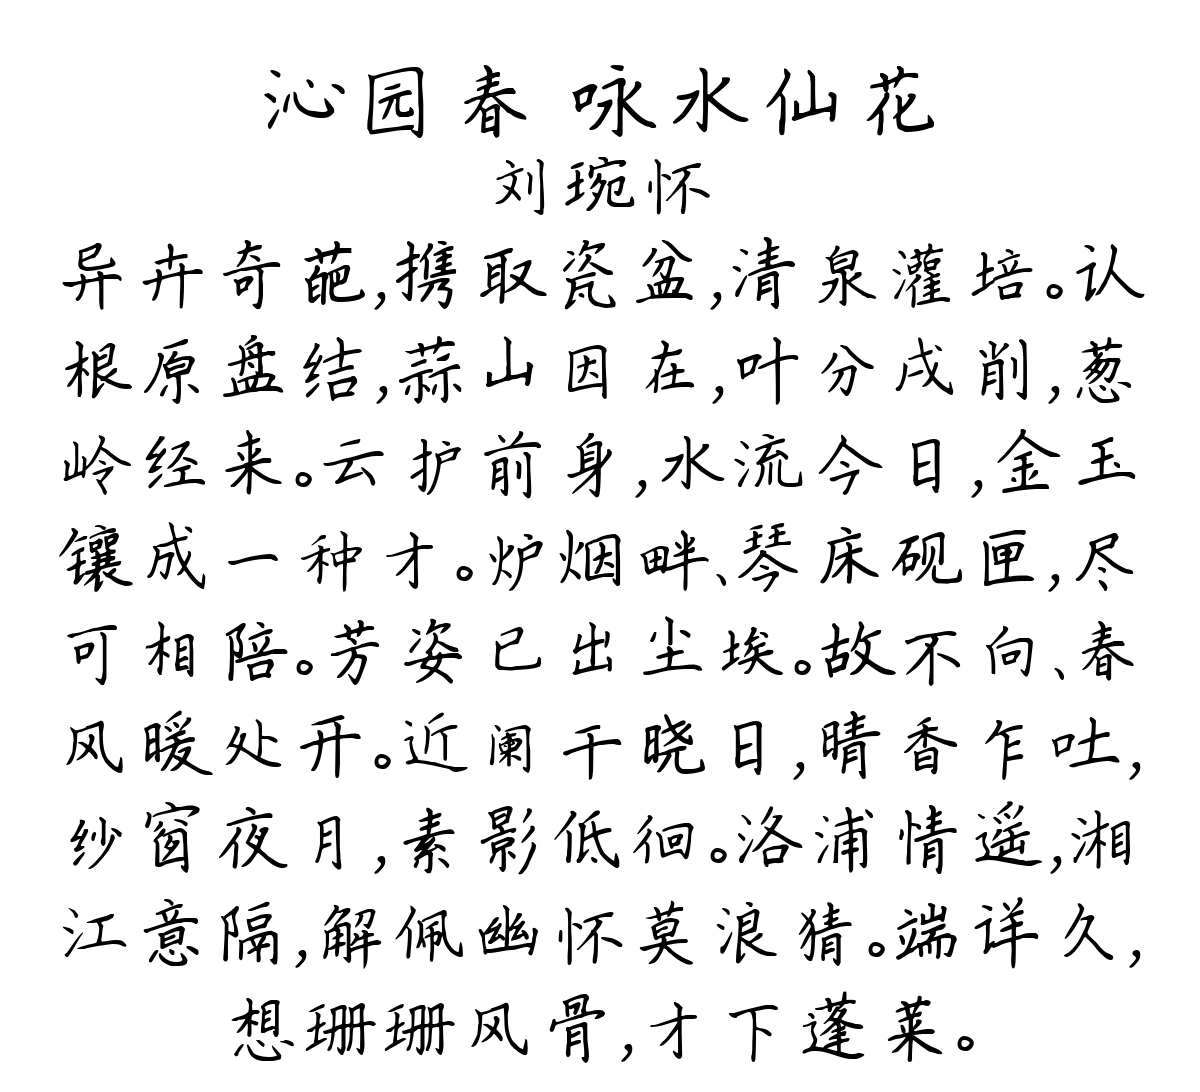 沁园春 咏水仙花
刘琬怀
异卉奇葩,携取瓷盆,清泉灌培。认
根原盘结,蒜山因在,叶分戌削,葱
岭经来。云护前身,水流今日,金玉
镶成一种才。炉烟畔、琴床砚匣,尽
可相陪。芳姿已出尘埃。故不向、春
风暖处开。近阑干晓日,晴香乍吐,
纱窗夜月,素影低徊。洛浦情遥,湘
江意隔,解佩幽怀莫浪猜。端详久,
想珊珊风骨,才下蓬莱。